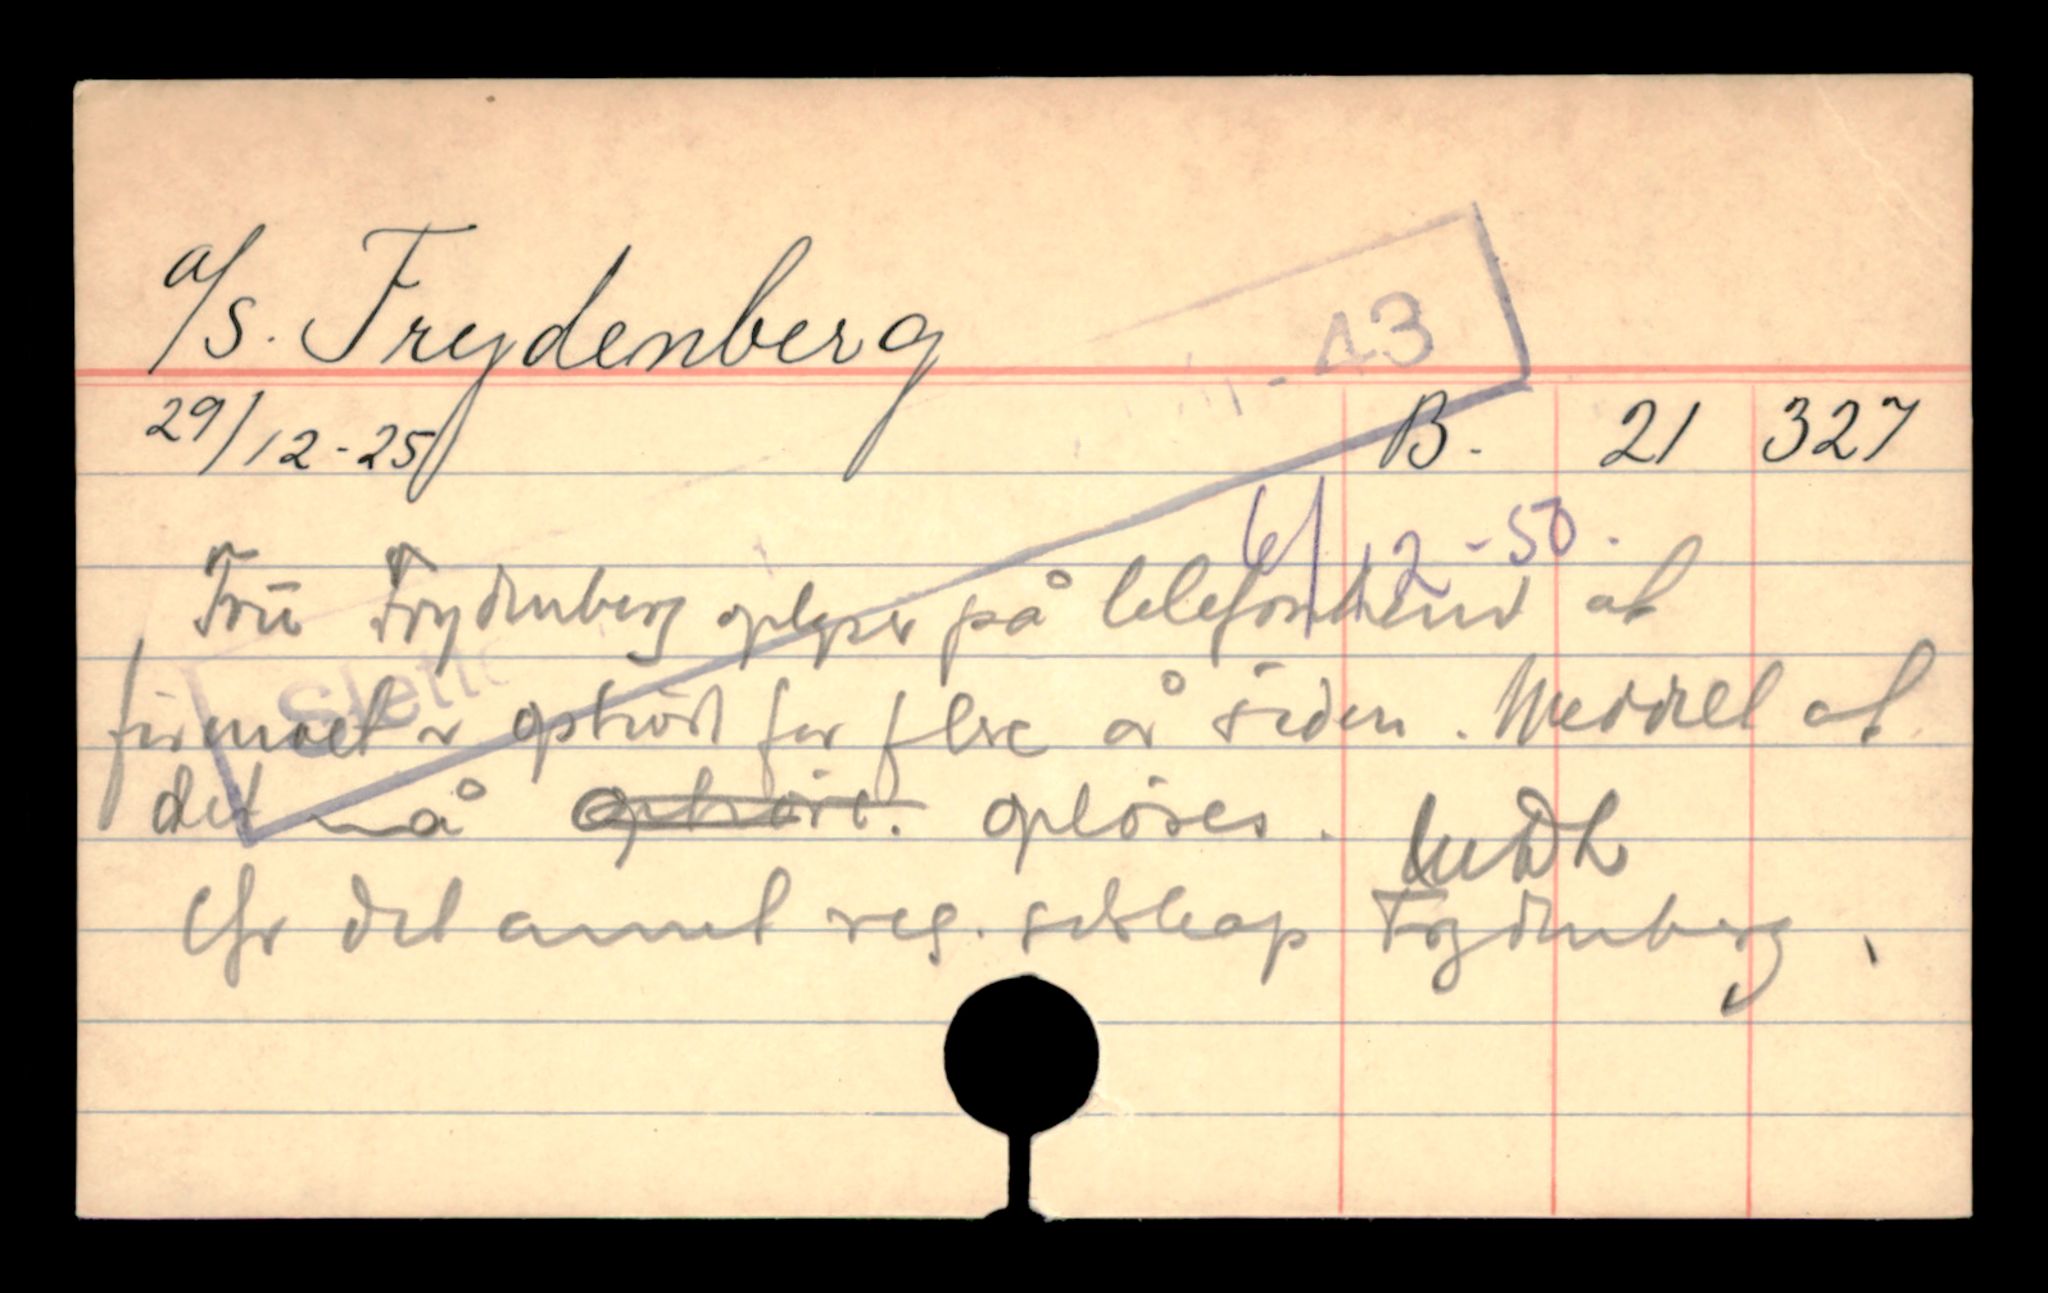 a/s. Frydenberg
- 43
29/12-25 B. 21 327
6/12-50.
Frü Frydenberg oplyser på telefonhenv at
firmaet er ophört for flere år siden. Meddelt at
Slette
det må ophöre. oplöses.
Gr det annet reg. selskap Frydenberg